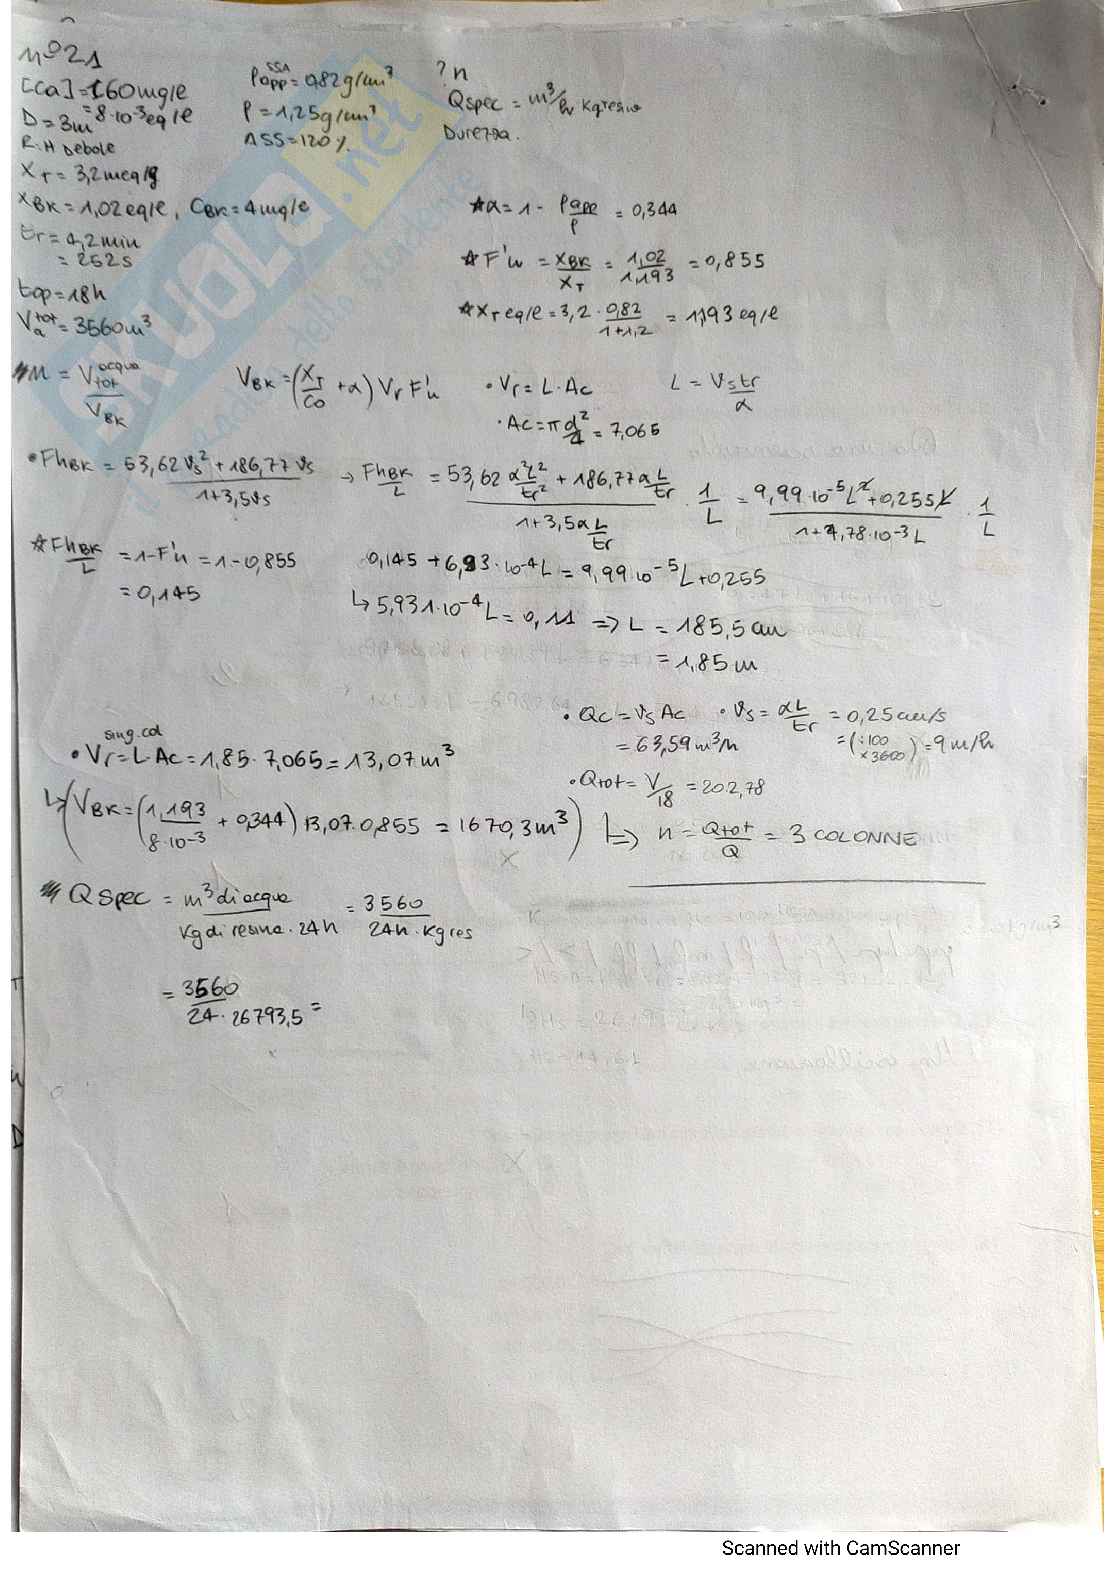 n°21
[Ca]=160mg/e
= 8·10⁻³ eq/e
D = 3m
R.H Debole
X_T = 3,2 meq/g
X_BK = 1,02 eq/e, C_BK = 4 mg/e
t_r = 4,2 min
= 252s
t_op = 18h
V_a^tot = 3560m³
ρ_app^SSA = 0,82 g/cm³
ρ = 1,25 g/cm³
ASS = 120 %
? n
Qspec = m³/h Kg resina
Durezza.
*α = 1 - ρapp/ρ = 0,344
*F'u = X_BK/X_T = 1,02/1,193 = 0,855
*X_T eq/e = 3,2 · 0,82/1+1,2 = 1,193 eq/e
M = V_tot^acqua / V_BK
V_BK = (X_T/C0 + α) Vr F'u
• Vr = L · Ac
L = Vs tr/α
• Ac = π d²/4 = 7,065
• Fh_BK = 53,62 Vs² + 186,77 Vs / 1+3,5Vs
→ Fh_BK/L = 53,62 α²L²/tr² + 186,77 α L/tr / 1+3,5α L/tr · 1/L = 9,99·10⁻⁵L² + 0,255L / 1+4,78·10⁻³L · 1/L
*Fh_BK/L = 1-F'u = 1-0,855
= 0,145
0,145 + 6,93·10⁻⁴L = 9,99·10⁻⁵L + 0,255
↳ 5,931·10⁻⁴L = 0,11 => L = 185,5 cm
= 1,85 m
• Qc = Vs Ac
= 63,59 m³/h
• Vs = αL/tr = 0,25 cm/s
= (:100 x3600) = 9 m/h
sing.col
• Vr = L·Ac = 1,85 · 7,065 = 13,07 m³
• Qtot = V/18 = 202,78
↳ (V_BK = (1,193/8·10⁻³ + 0,344) 13,07·0,855 = 1670,3m³)
↳ n = Qtot/Q = 3 COLONNE
Q spec = m³ di acqua / Kg di resina · 24h = 3560 / 24h · Kg res
= 3560 / 24 · 26793,5 =
SKUOLA.net
Scanned with CamScanner